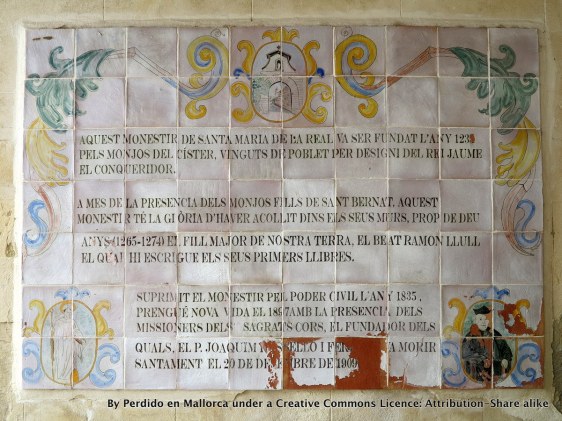 AQUEST MONESTIR DE SANTA MARIA DE LA REAL VA SER FUNDAT L'ANY 123
PELS MONJOS DEL CÍSTER, VINGUTS DE POBLET PER DESIGNI DEL REI JAUME
EL CONQUERIDOR.
A MES DE LA PRESENCIA DELS MONJOS FILLS DE SANT BERNAT, AQUEST
MONESTIR TÉ LA GLÒRIA D'HAVER ACOLLIT DINS ELS SEUS MURS, PROP DE DEU
ANYS (1265-1274) EL FILL MAJOR DE NOSTRA TERRA, EL BEAT RAMON LLULL
EL QUAL HI ESCRIGUE ELS SEUS PRIMERS LLIBRES.
SUPRIMIT EL MONESTIR PEL PODER CIVIL L'ANY 1835,
PRENGUÉ NOVA VIDA EL 1897 AMB LA PRESENCIA DELS
MISSIONERS DELS SAGRATS CORS, EL FUNDADOR DELS
QUALS, EL P. JOAQUIM MORIR
SANTAMENT EL 20 DE DE EMBRE DE 1909
By Perdido en Mallorca under a Creative Commons Licence: Attribution-Share alike